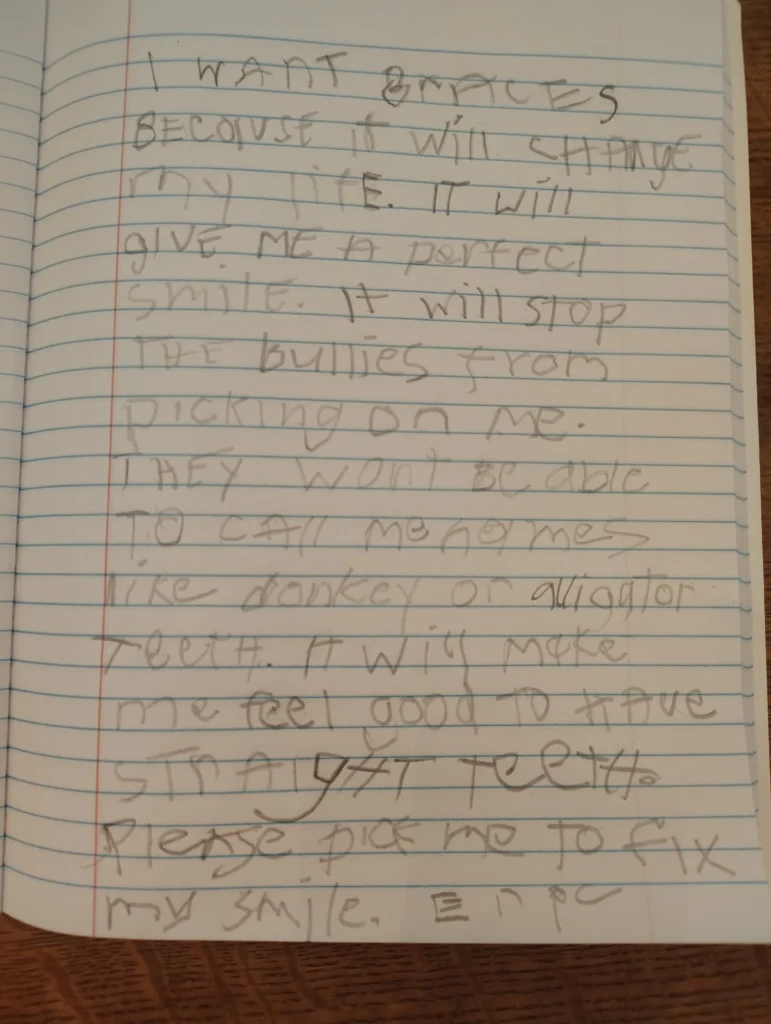 I WANT BRACES
BECAUSE it will CHANGE
my lifE. IT will
gIVE ME A perfect
smilE. It will stop
THE bullies from
picking on me.
THEY wont BE able
TO CAll me names
like donkey or alligator
Teeth. It will make
me feel good TO HAVE
STrAIgHT TeeTH.
Please pick me TO fix
my smile.